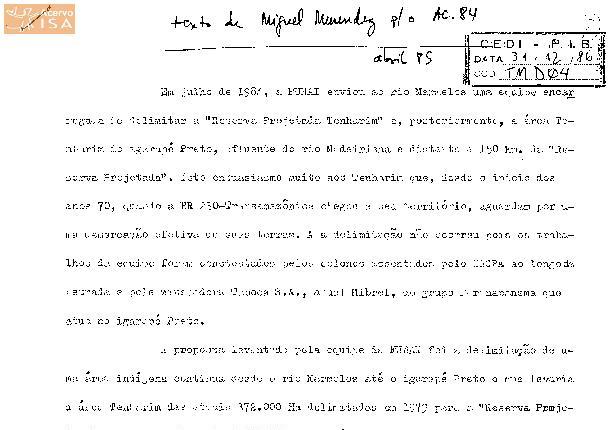 Acervo
ISA
texto de Miguel Menendez p/o AC. 84
abril 85
CEDI - P. I. B.
DATA 31 12 86
COD TMD04
Em julho de 198, a FUNAI enviou ao rio Marmelos uma equipe encar
regada de delimitar a "Reserva Projetada Tenharim" e, posteriormente, a área Te-
nharim do igarapé Preto, afluente do rio Madeirinha e distante a 150 km. da "Re-
serva Projetada". Isto entusiasmou muito aos Tenharim que, desde o início dos
anos 70, quando a BR 230-Transamazônica chegou a seu território, aguardam por u-
ma demarcação efetiva de suas terras. A delimitação não ocorreu pois os traba-
lhos da equipe foram contestados pelos colonos assentados pelo INCRA ao longo da
estrada e pela mineradora Taboca S.A., do grupo Paranapanema que
atua no igarapé Preto.
A proposta levantada pela equipe da FUNAI foi a delimitação de u-
ma área indígena contínua desde o rio Marmelos até o igarapé Preto o que levaria
a área Tenharim das atuais 372.000 Ha delimitados em 1979 para a "Reserva Proje-